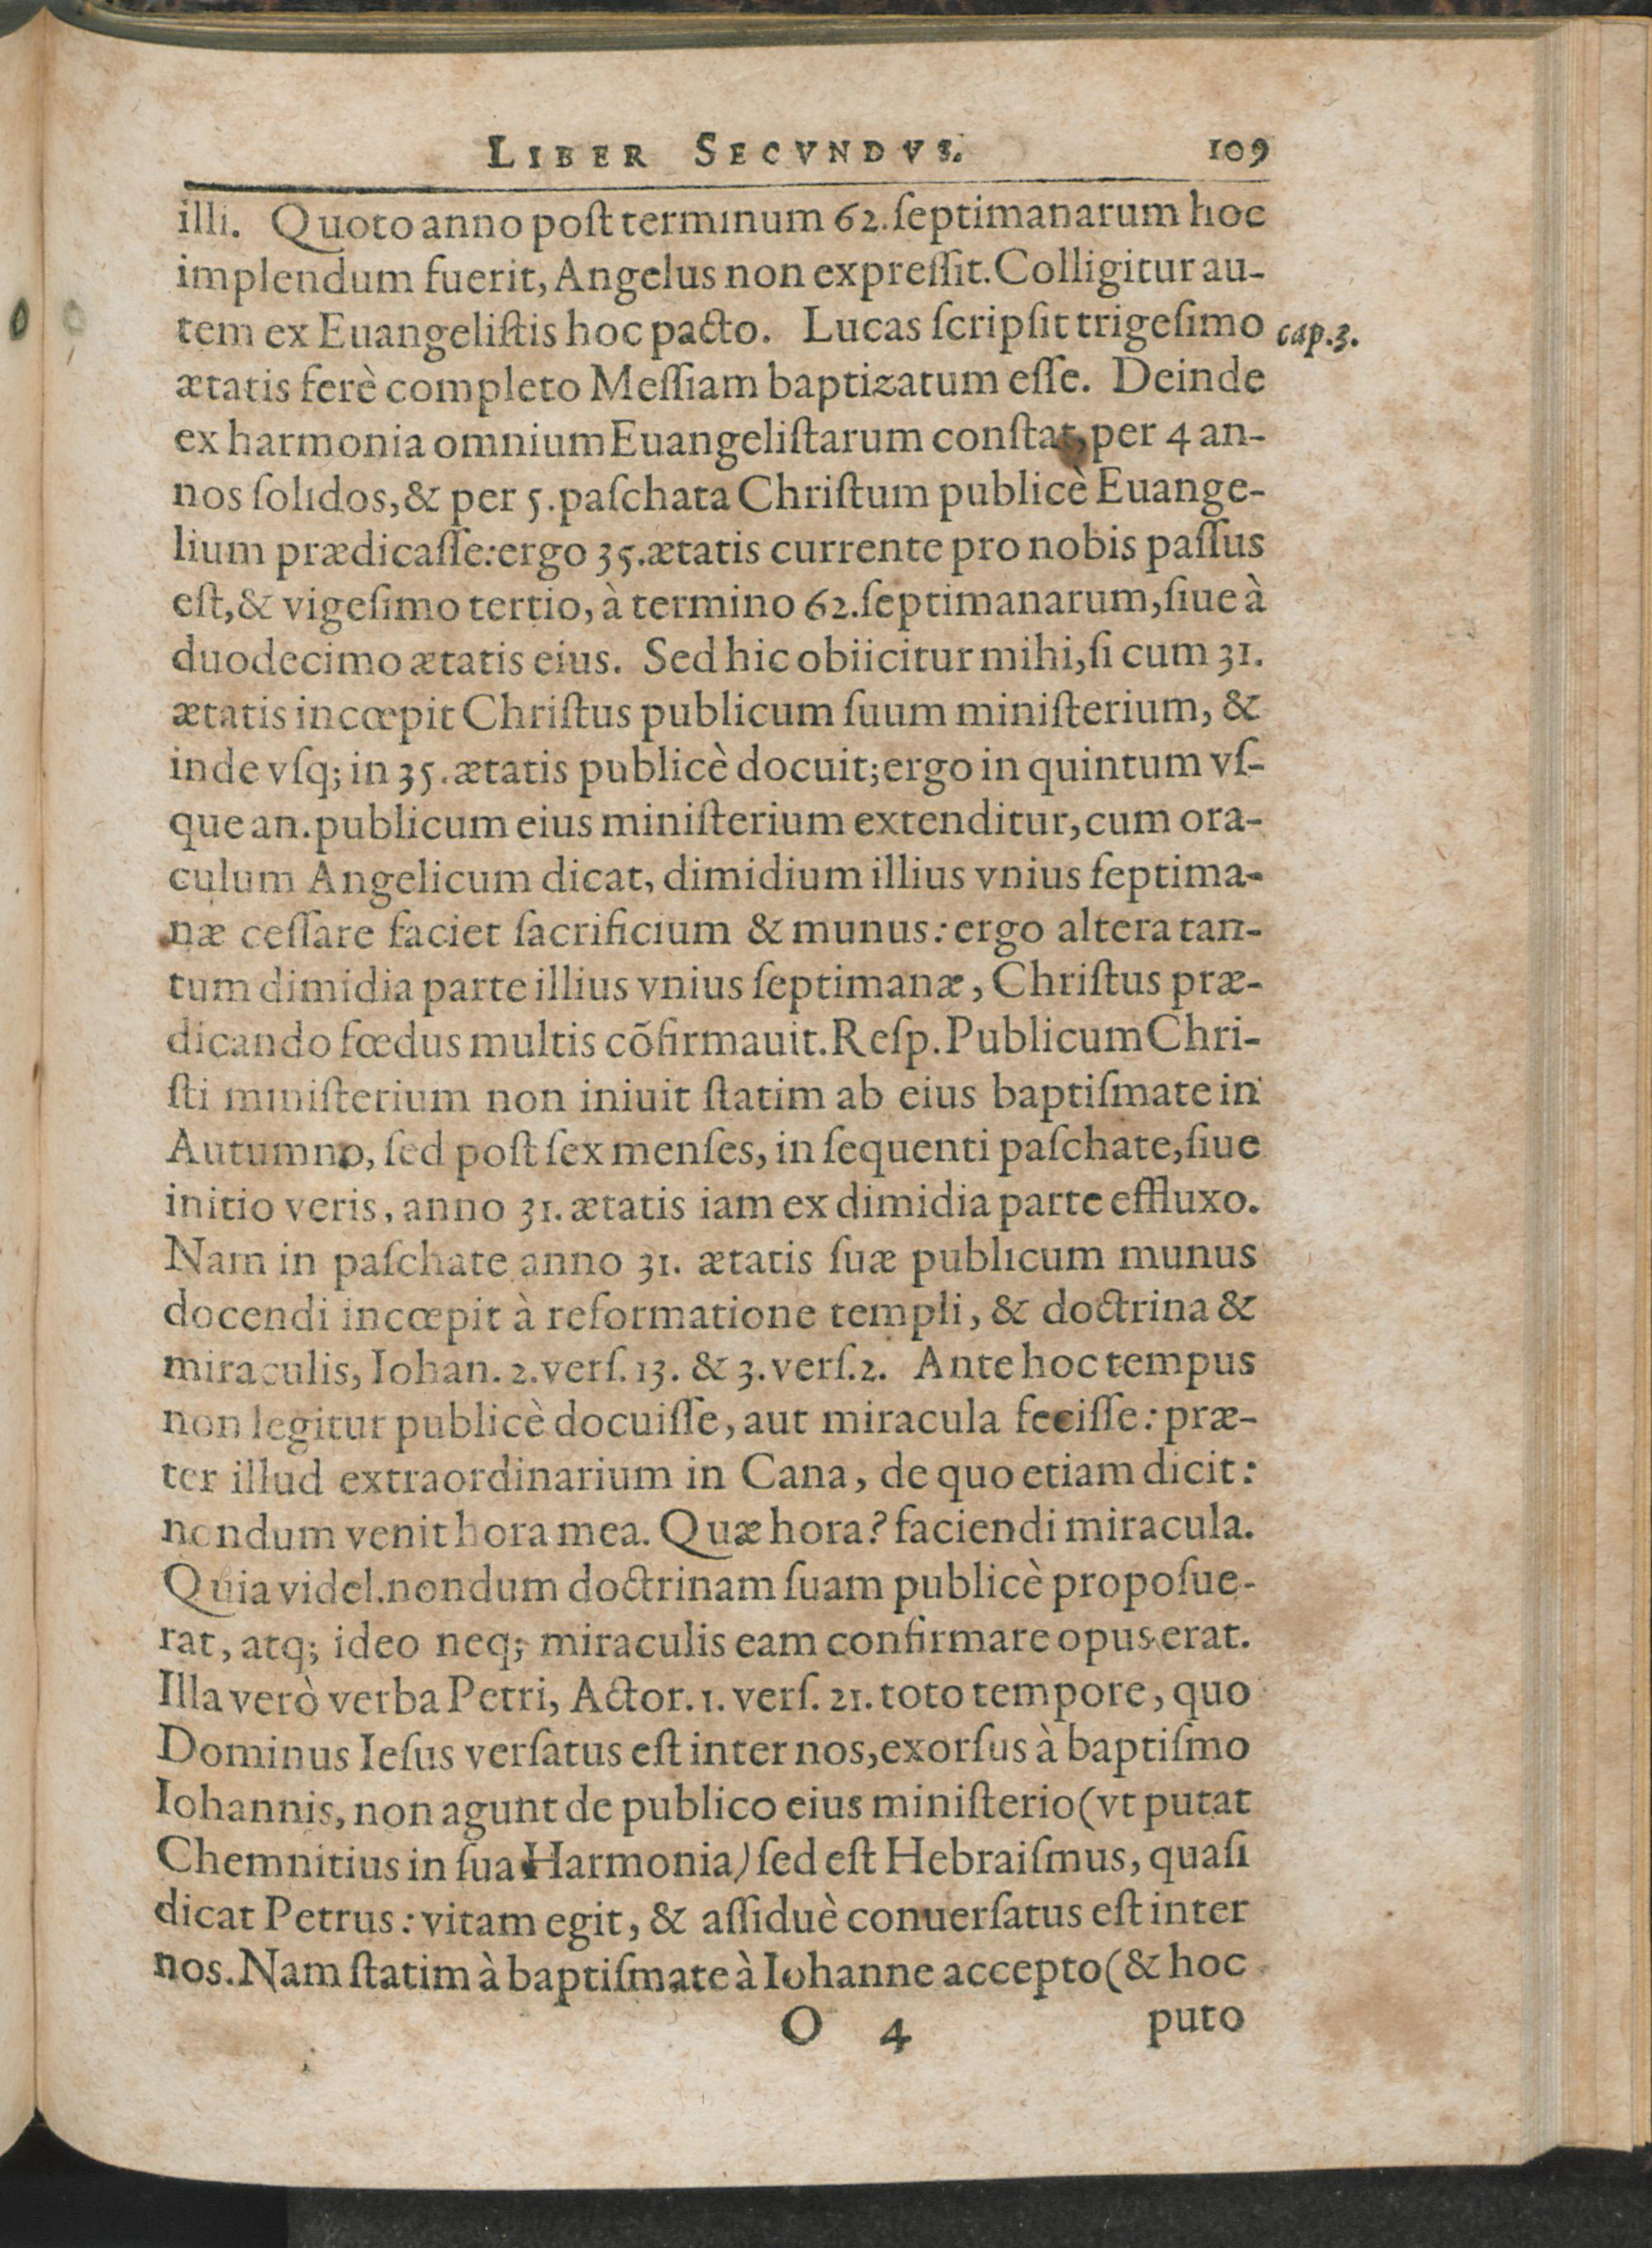 LIBER SECVNDVS. 109
illi. Quoto anno poſt terminum 62. ſeptimanarum hoc
implendum fuerit, Angelus non expreſſit. Colligitur au-
tem ex Euangeliſtis hoc pacto. Lucas ſcripſit trigeſimo cap. 3.
ætatis ferè completo Meſſiam baptizatum eſſe. Deinde
ex harmonia omnium Euangeliſtarum conſtat, per 4 an-
nos ſolidos, & per 5. paſchata Chriſtum publicè Euange-
lium prædicaſſe: ergo 35. ætatis currente pro nobis paſſus
eſt, & vigeſimo tertio, à termino 62. ſeptimanarum, ſiue à
duodecimo ætatis eius. Sed hic obiicitur mihi, ſi cum 31.
ætatis incœpit Chriſtus publicum ſuum miniſterium, &
inde vſq; in 35. ætatis publicè docuit; ergo in quintum vſ-
que an. publicum eius miniſterium extenditur, cum ora-
culum Angelicum dicat, dimidium illius vnius ſeptima-
næ ceſſare faciet ſacrificium & munus: ergo altera tan-
tum dimidia parte illius vnius ſeptimanæ, Chriſtus præ-
dicando fœdus multis cõfirmauit. Reſp. Publicum Chri-
ſti miniſterium non iniuit ſtatim ab eius baptiſmate in
Autumno, ſed poſt ſex menſes, in ſequenti paſchate, ſiue
initio veris, anno 31. ætatis iam ex dimidia parte effluxo.
Nam in paſchate anno 31. ætatis ſuæ publicum munus
docendi incœpit à reformatione templi, & doctrina &
miraculis, Iohan. 2. verſ. 13. & 3. verſ. 2. Ante hoc tempus
non legitur publicè docuiſſe, aut miracula feciſſe: præ-
ter illud extraordinarium in Cana, de quo etiam dicit:
nondum venit hora mea. Quæ hora? faciendi miracula.
Quia videl. nondum doctrinam ſuam publicè propoſue-
rat, atq; ideo neq; miraculis eam confirmare opus erat.
Illa verò verba Petri, Actor. 1. verſ. 21. toto tempore, quo
Dominus Ieſus verſatus eſt inter nos, exorſus à baptiſmo
Iohannis, non agunt de publico eius miniſterio (vt putat
Chemnitius in ſua Harmonia) ſed eſt Hebraiſmus, quaſi
dicat Petrus: vitam egit, & aſſiduè conuerſatus eſt inter
nos. Nam ſtatim à baptiſmate à Iohanne accepto (& hoc
O 4 puto